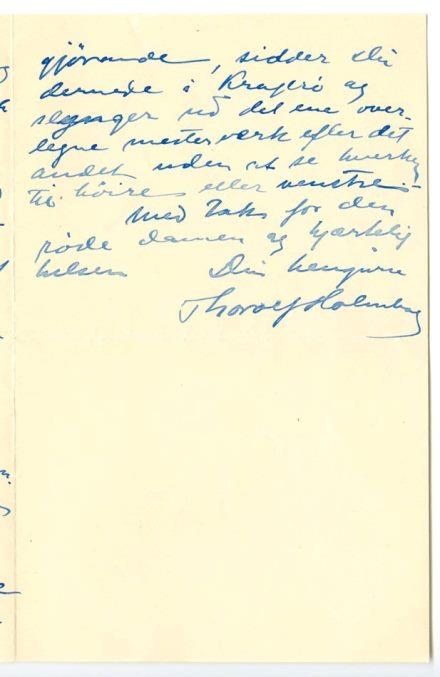 gjørende, sidder Du
dernede i Kragerø og
slynger ud det ene over-
legne mesterværk efter det
andet uden at se hverken
til høire eller venstre –
Med tak for den
røde damen og hjærtelig
hilsen Din hengivne
Thorolf Holmboe